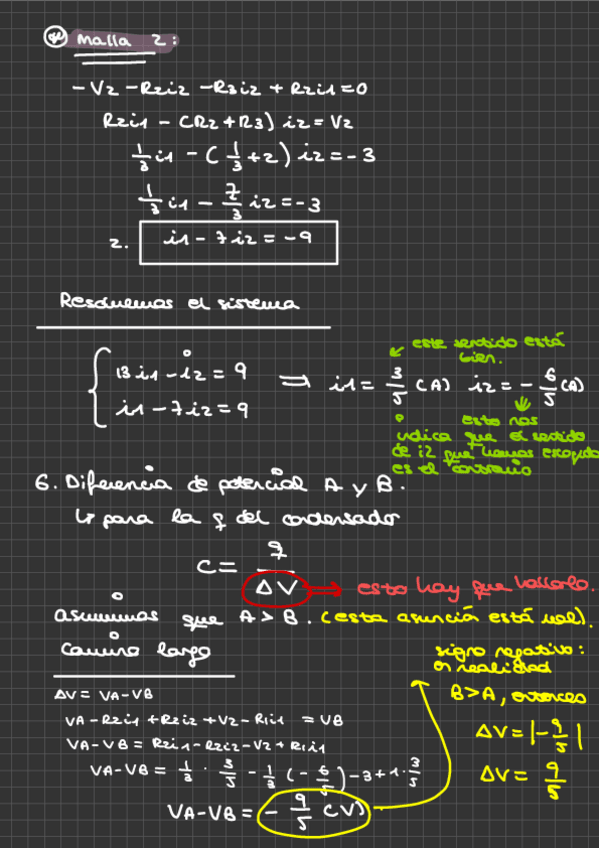 * Malla 2:
- V2 - R2i2 - R3i2 + R2i1 = 0
R2i1 - (R2 + R3) i2 = V2
1/3 i1 - (1/3 + 2) i2 = -3
1/3 i1 - 7/3 i2 = -3
2. i1 - 7i2 = -9
Resolvemos el sistema
{ 13i1 - i2 = 9
i1 - 7i2 = 9
⇒ i1 = 3/5 (A) i2 = - 6/5 (A)
este sentido está
bien.
esto nos
indica que el sentido
de i2 que hemos escogido
es el contrario
6. Diferencia de potencial A y B.
↳ para la q del condensador
C = q/ΔV ⇒ esto hay que hallarlo.
asumimos que A > B. (esta asunción está mal).
Camino largo
ΔV = VA - VB
VA - R2i1 + R2i2 + V2 - R1i1 = VB
VA - VB = R2i1 - R2i2 - V2 + R1i1
VA - VB = 1/3 · 3/5 - 1/3 (- 6/5) - 3 + 1 · 3/5
VA - VB = - 9/5 (V)
signo negativo:
en realidad
B > A, entonces
ΔV = |- 9/5|
ΔV = 9/5